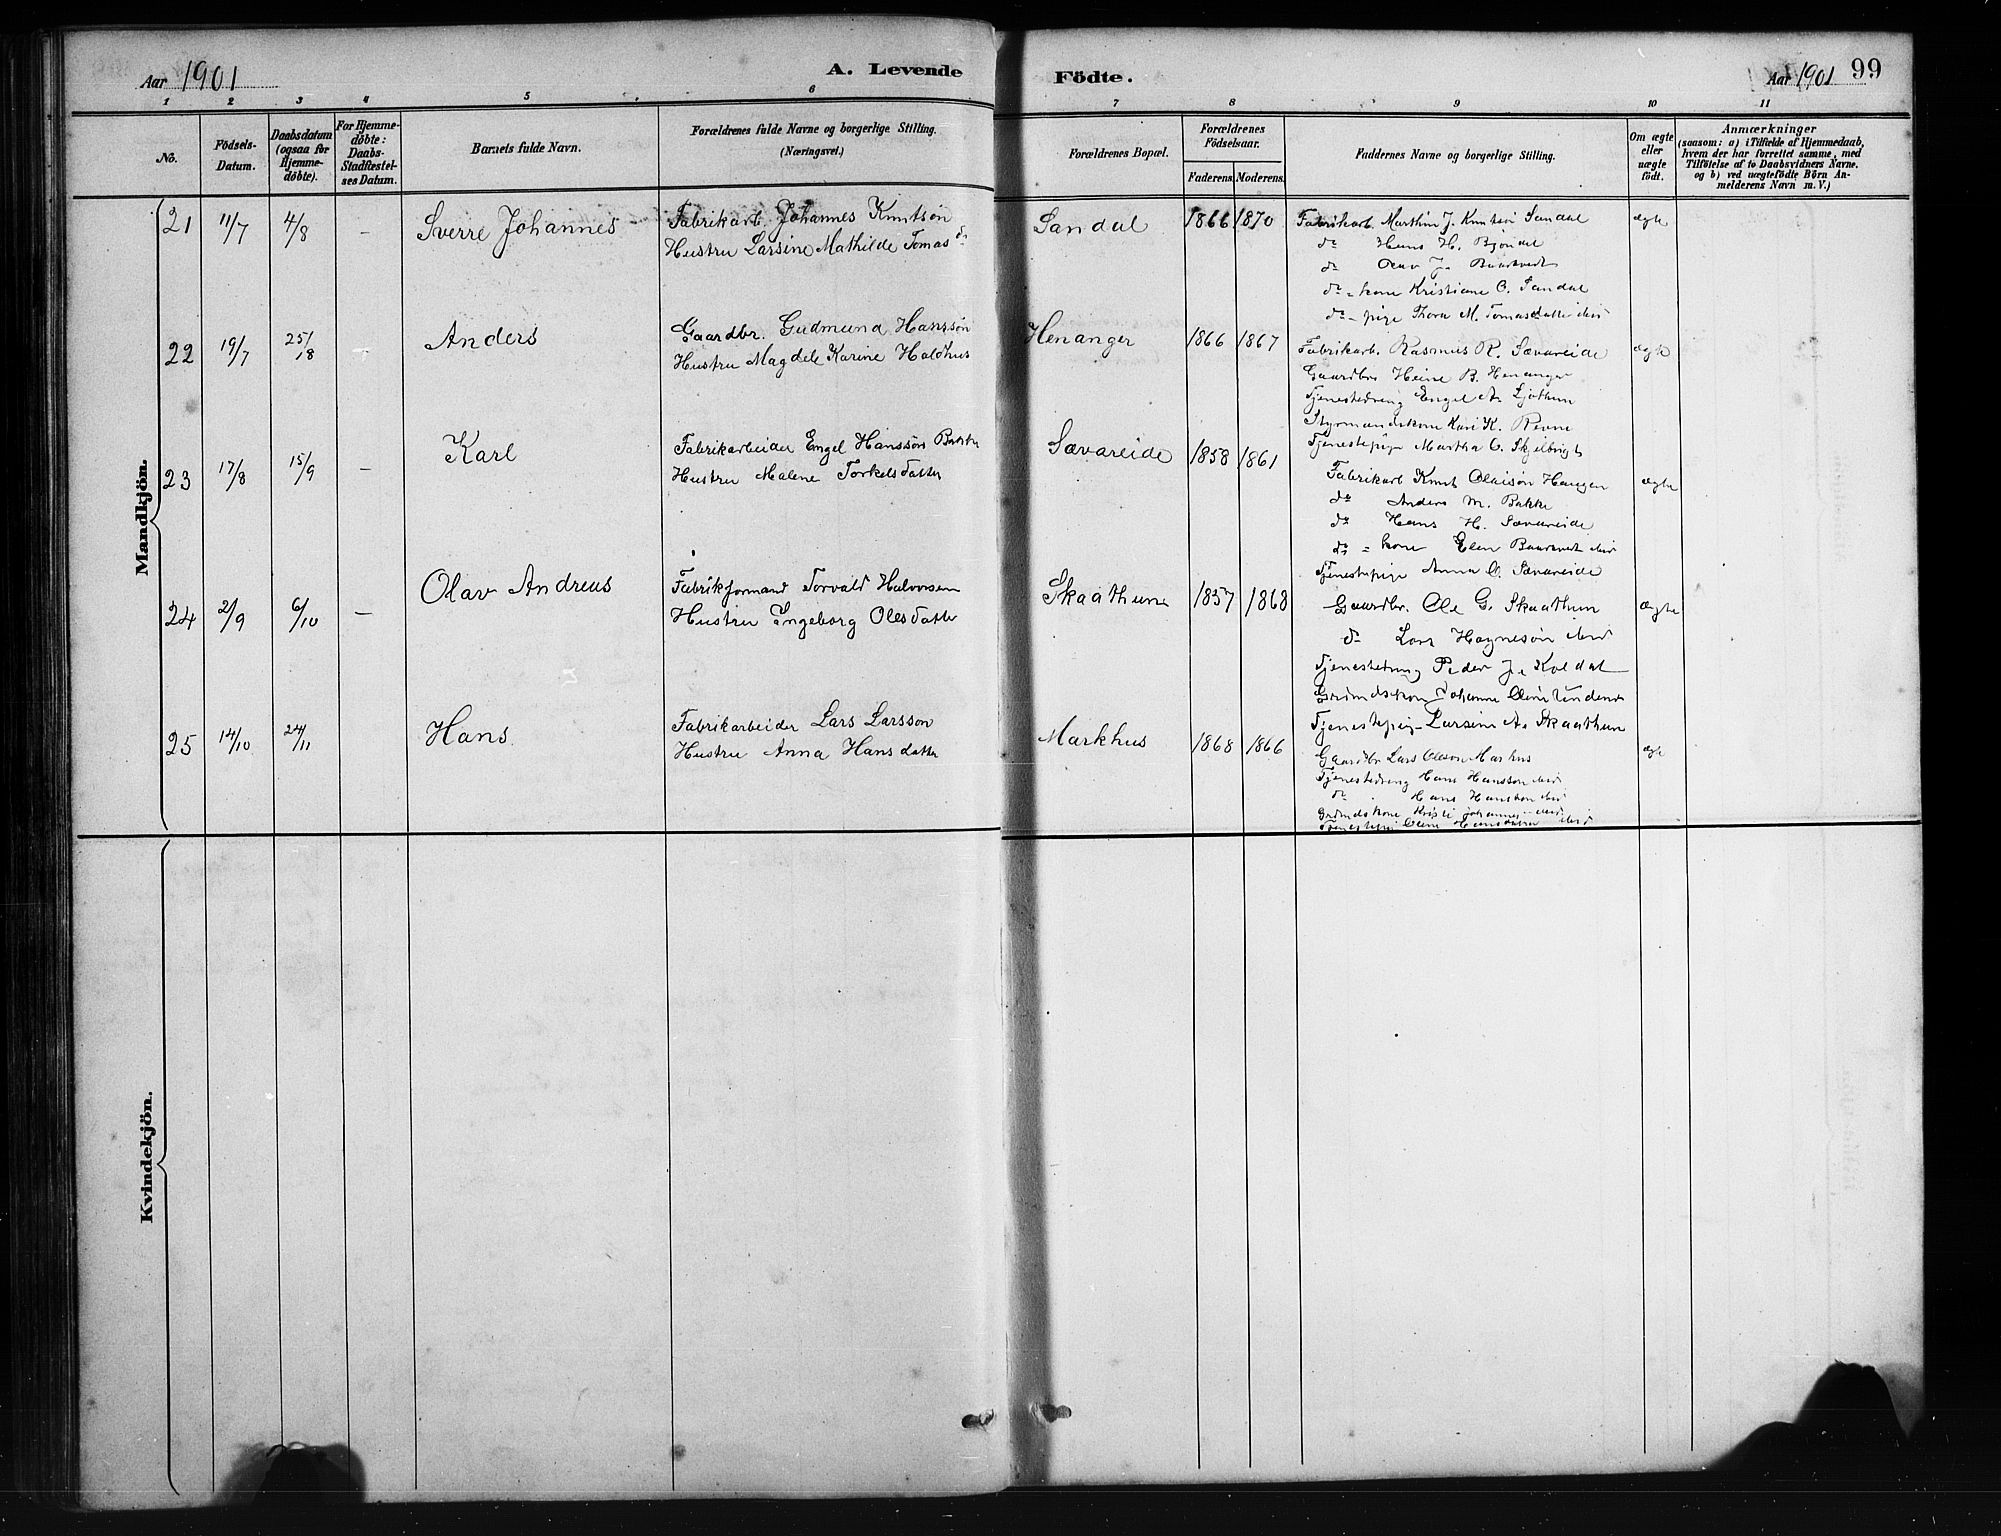 Aar 1901
A. Levende
Födte.
Aar 1901
99
1 2 3 4 5 6 7 8 9 10 11
No.
Födsels-Datum.
Daabsdatum (ogsaa for Hjemme-döbte).
For Hjemme-döbte: Daabs-Stadfæstel-ses Datum.
Barnets fulde Navn.
Forældrenes fulde Navne og borgerlige Stilling.
(Næringsvei.)
Forældrenes Bopæl.
Forældrenes Födselsaar.
Faderens. Moderens.
Faddernes Navne og borgerlige Stilling.
Om ægte eller uægte födt.
Anmærkninger
(saasom: a) i Tilfælde af Hjemmedaab,
hvem der har forrettet samme, med
Tilföielse af to Daabsvidners Navne.
og b) ved uægtefödte Börn An-
melderens Navn m. V.)
Mandkjön.
21 11/7 4/8 – Sverre Johannes
Fabrikarb. Johannes Knutsön
Hustru Larsine Mathilde Tomas dr
Sandal 1866 1870
Fabrikarb. Marthin J. Knutsön Sandal
do Hans H. Bjöndal
do Olav J. Baartvedt
do - kone Kristiane O. Sandal
do - pige Thora M. Tomasdatter ibid
ægte
22 19/7 25/8 – Anders
Gaardbr. Gudmund Hanssön
Hustru Magdele Karine Haldhus
Henanger 1866 1867
Fabrikarb. Rasmus R. Sævareide
Gaardbr Heine B. Henanger
Tjenestedreng Engel A. Ljothun
Styrmandskone Kari K. Revne
Tjenestepige Martha O. Skjelbrigt
ægte
23 17/8 15/9 – Karl
Fabrikarbeider Engel Hanssön Bakke
Hustru Malene Torkelsdatter
Sævareide 1858 1861
Fabrikarb Knut Olaisön Haugen
do Anders M. Bakke
do Hans H. Sævareide
do - kone Elen Baartvedt ibid
Tjenestepige Anna O. Sævareide
ægte
24 2/9 6/10 – Olav Andreas
Fabrikformand Torvald Halvorsen
Hustru Ingeborg Olesdatter
Skaathun 1857 1868
Gaardbr. Ole G. Skaathun
do Lars Hagnesön ibid
Tjenestedreng Peder J. Koldal
Tjenestepige Larsine A. Skaathun
ægte
25 14/10 24/11 Hans
Fabrikarbeider Lars Larsson
Hustru Anna Hansdatter
Markhus 1868 1866
Gaardbr Lars Oleson Markus
Tjenestedreng Hans Hansson ibid
do Hans Hansson ibid
Kristi Johannes ibid
Tjenestepige Oline Hansdatter ibid
ægte
Kvindekjön.